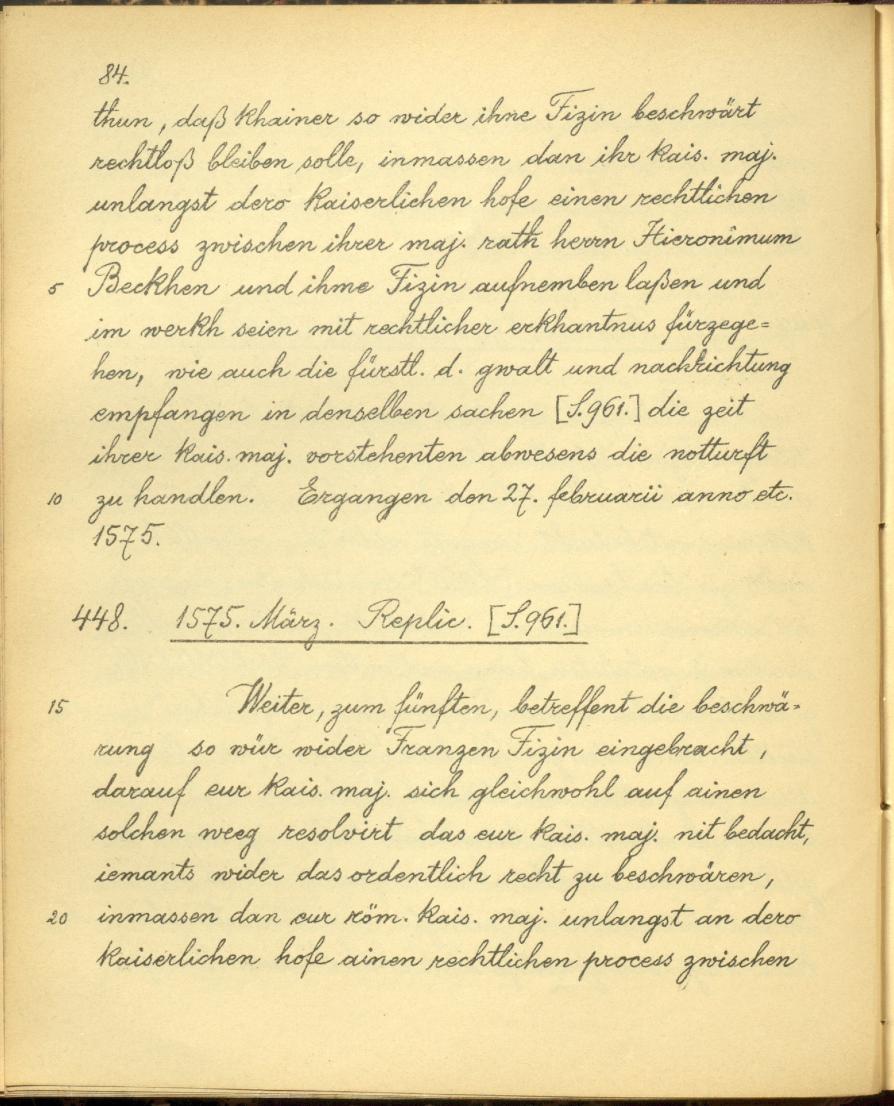 84.
thun, daß khainer so wider ihne Fizin beschwärt
rechtloß bleiben solle, inmassen dan ihr kais. maj.
unlangst dero kaiserlichen hofe einen rechtlichen
process zwischen ihrer maj. rath herrn Hieronimum
5 Beckhen und ihme Fizin aufnemben laßen und
im werkh seien mit rechtlicher erkhantnus fürzege=
hen, wie auch die fürstl. d. gwalt und nachrichtung
empfangen in denselben sachen [S.961.] die zeit
ihrer kais. maj. vorstehenten abwesens die notturft
10 zu handlen. Ergangen den 27. februarii anno etc.
1575.
448. 1575. März. Replic. [S.961.]
15 Weiter, zum fünften, betreffent die beschwä-
rung so wür wider Franzen Fizin eingebracht,
darauf eur kais. maj. sich gleichwohl auf ainen
solchen weeg resolvirt das eur kais. maj. nit bedacht,
iemants wider das ordentlich recht zu beschwären,
20 inmassen dan eur röm. kais. maj. unlangst an dero
kaiserlichen hofe ainen rechtlichen process zwischen